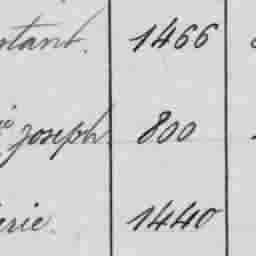 stant. 1466
joseph 800
érie. 1440